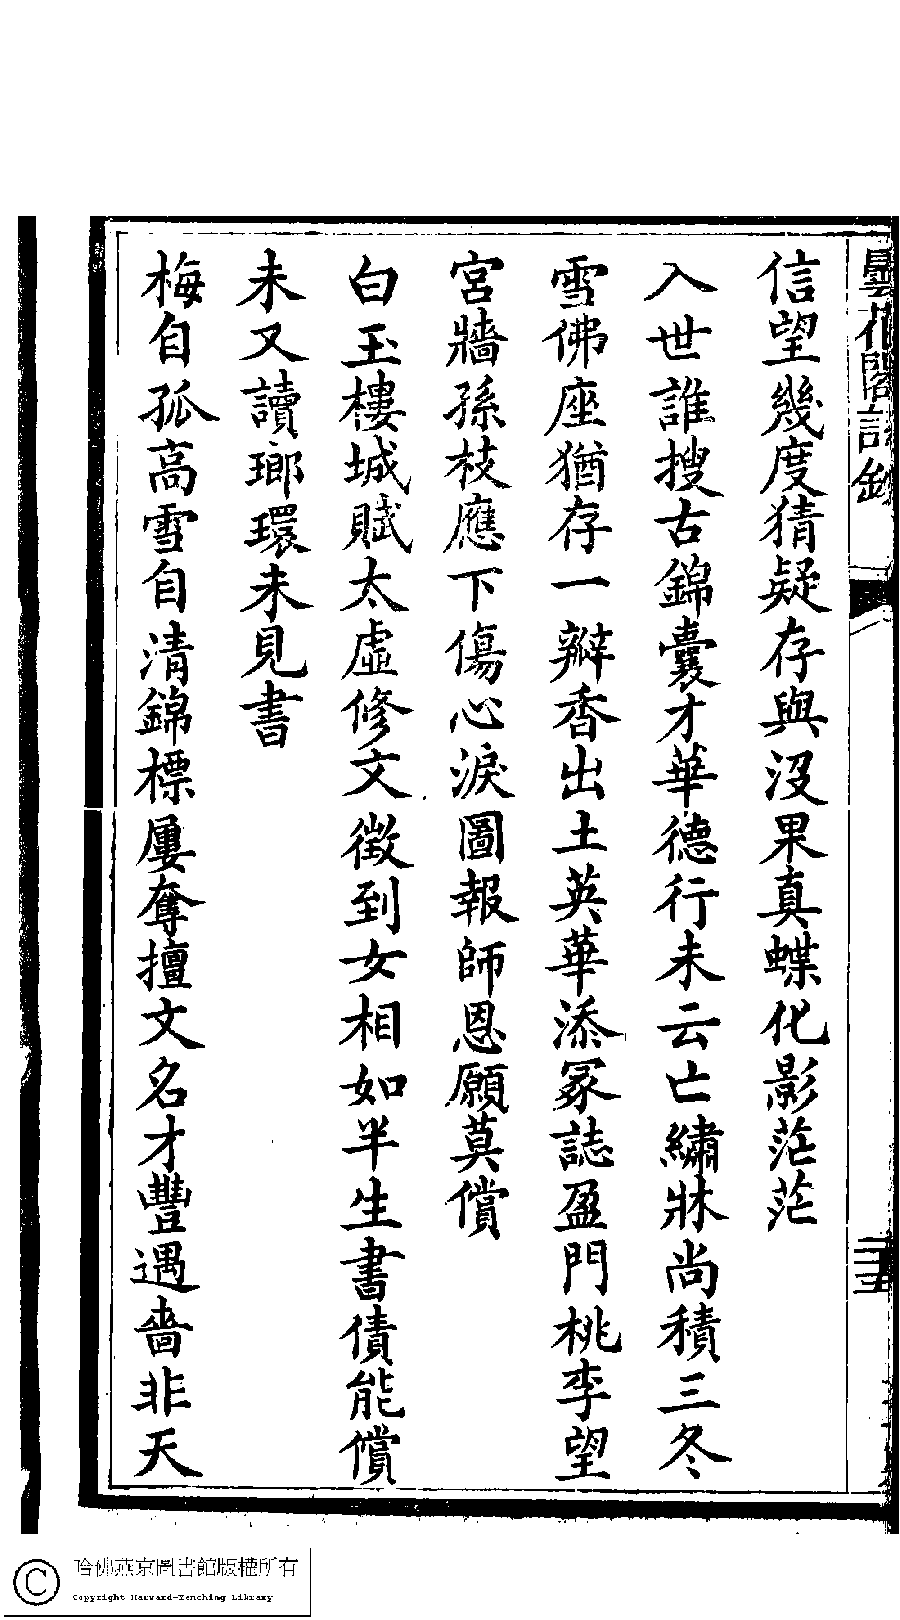 曇花閣詩鈔
信望幾度猜疑存與沒果真蝶化影茫茫
入世誰搜古錦囊才華德行未云亡繡牀尚積三冬
雪佛座猶存一瓣香出土英華添冢誌盈門桃李望
宮牆孫枝應下傷心淚圖報師恩願莫償
白玉樓城賦太虛修文徵到女相如半生書債能償
未又讀瑯環未見書
梅自孤高雪自清錦標屢奪擅文名才豐遇嗇非天
哈佛燕京圖書館版權所有
Copyright Harvard-Yenching Library